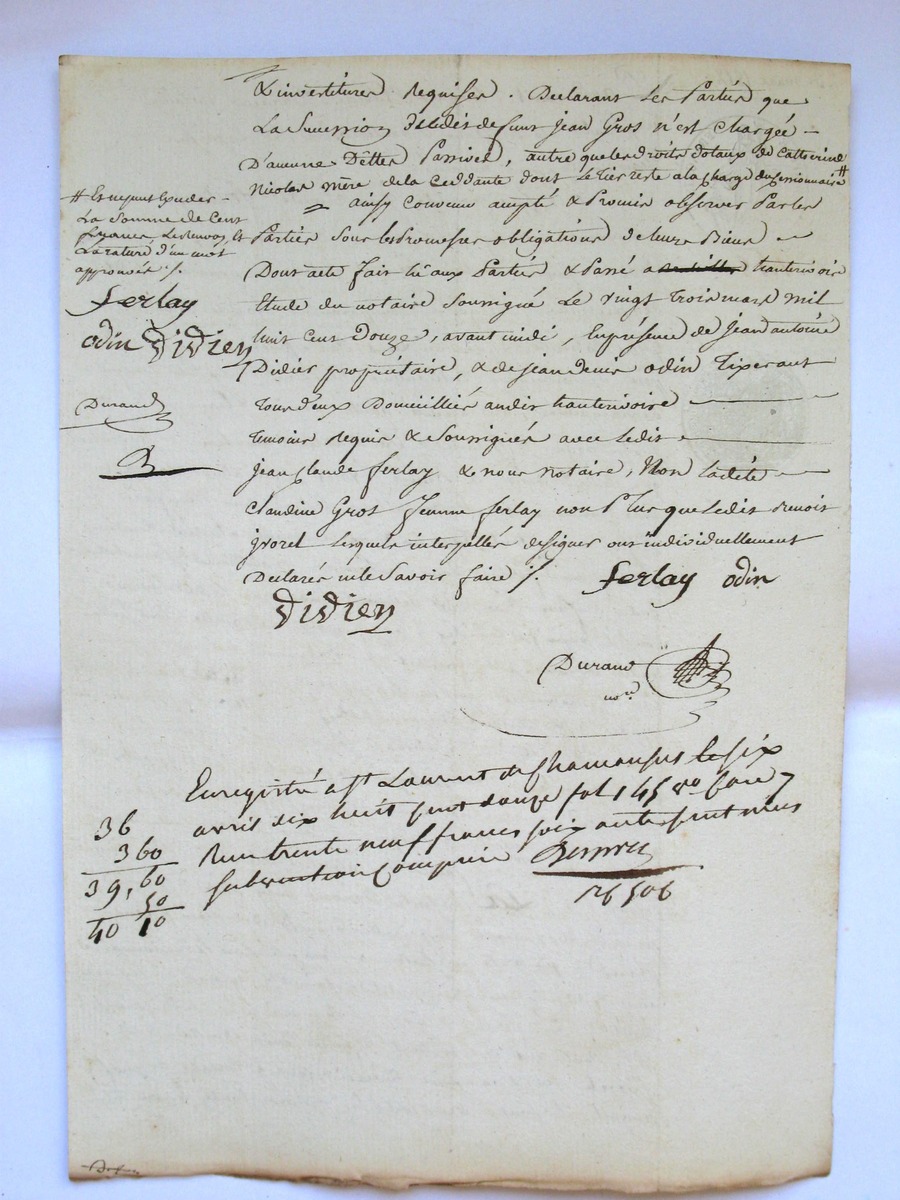 & investitures requises. Declarant les Parties que
La Succession dudit defunt jean Gros n'est chargée
D'aucune Dêttes Passives, autre que les droits dotaux de Catherine
Nicolas mère de la Ceddante dont le tier reste a la charge du Cessionnaire #
ainsy convenu accepté & Promis observer Par les
Parties sous les Promesses obligations de leurs Biens
Dont acte fait lû aux Parties & Passé a hauterivoire
Etude du notaire soussigné Le vingt trois mars mil
huit Cent Douze, avant midi, En présence de jean antoine
Didier propriétaire, & de jean denis odin Tixerant
tous deux Domicilliés audit hauterivoire
temoins requis & soussignés avec Ledit
jean Claude ferlay & nous notaire, Non Ladite
Claudine Gros Jeanne ferlay non Plus que Ledit Benoit
grozel Lesquels interpellés de signer ont individuellement
Declarés ne le Savoir faire ./.
ferlay odin
Didier
Durand
nore
# Et
La Somme de Cent
francs Le Renvoy Et
La raturé d'un mot
approuvés ./.
ferlay
odin Didier
Durand
Enregistré a St Laurent de Chamousset le six
avril dix huit cent douze fol 145 vo Case 7
Reçu trente neuf francs soixante centimes
subvention Comprise
36
3 60
39,60
50
40 10